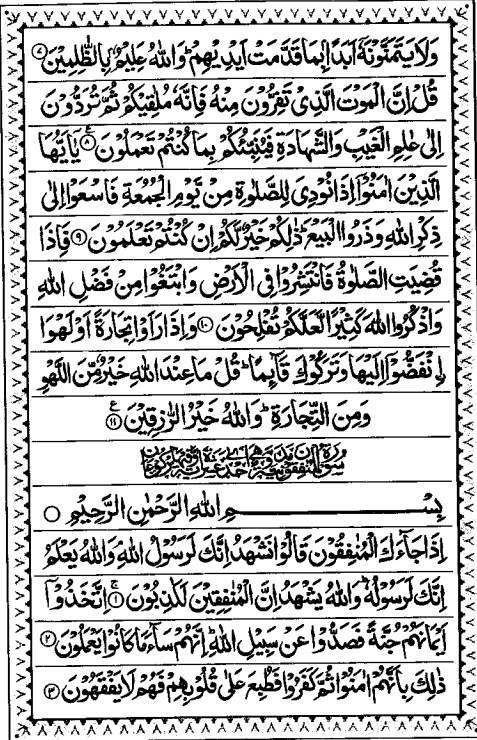 وَلَا يَتَمَنَّوْنَهٗۤ اَبَدًۢا بِمَا قَدَّمَتْ اَيْدِيْهِمْ ؕ وَاللّٰهُ عَلِيْمٌۢ بِالظّٰلِمِيْنَ ۷
قُلْ اِنَّ الْمَوْتَ الَّذِيْ تَفِرُّوْنَ مِنْهُ فَاِنَّهٗ مُلٰقِيْكُمْ ثُمَّ تُرَدُّوْنَ
اِلٰى عٰلِمِ الْغَيْبِ وَالشَّهَادَةِ فَيُنَبِّئُكُمْ بِمَا كُنْتُمْ تَعْمَلُوْنَ ۸ يٰۤاَيُّهَا
الَّذِيْنَ اٰمَنُوْۤا اِذَا نُوْدِيَ لِلصَّلٰوةِ مِنْ يَّوْمِ الْجُمُعَةِ فَاسْعَوْا اِلٰى
ذِكْرِ اللّٰهِ وَذَرُوا الْبَيْعَ ؕ ذٰلِكُمْ خَيْرٌ لَّكُمْ اِنْ كُنْتُمْ تَعْلَمُوْنَ ۹ فَاِذَا
قُضِيَتِ الصَّلٰوةُ فَانْتَشِرُوْا فِي الْاَرْضِ وَابْتَغُوْا مِنْ فَضْلِ اللّٰهِ
وَاذْكُرُوا اللّٰهَ كَثِيْرًا لَّعَلَّكُمْ تُفْلِحُوْنَ ۱۰ وَاِذَا رَاَوْا تِجَارَةً اَوْ لَهْوَا
اۨنْفَضُّوْۤا اِلَيْهَا وَتَرَكُوْكَ قَآئِمًا ؕ قُلْ مَا عِنْدَ اللّٰهِ خَيْرٌ مِّنَ اللَّهْوِ
وَمِنَ التِّجَارَةِ ؕ وَاللّٰهُ خَيْرُ الرّٰزِقِيْنَ ۱۱ ع
بِسْمِ اللّٰهِ الرَّحْمٰنِ الرَّحِيْمِ
اِذَا جَآءَكَ الْمُنٰفِقُوْنَ قَالُوْا نَشْهَدُ اِنَّكَ لَرَسُوْلُ اللّٰهِ ۘ وَاللّٰهُ يَعْلَمُ
اِنَّكَ لَرَسُوْلُهٗ ؕ وَاللّٰهُ يَشْهَدُ اِنَّ الْمُنٰفِقِيْنَ لَكٰذِبُوْنَ ۱ اِتَّخَذُوْۤا
اَيْمَانَهُمْ جُنَّةً فَصَدُّوْا عَنْ سَبِيْلِ اللّٰهِ ؕ اِنَّهُمْ سَآءَ مَا كَانُوْا يَعْمَلُوْنَ ۲
ذٰلِكَ بِاَنَّهُمْ اٰمَنُوْا ثُمَّ كَفَرُوْا فَطُبِعَ عَلٰى قُلُوْبِهِمْ فَهُمْ لَا يَفْقَهُوْنَ ۳